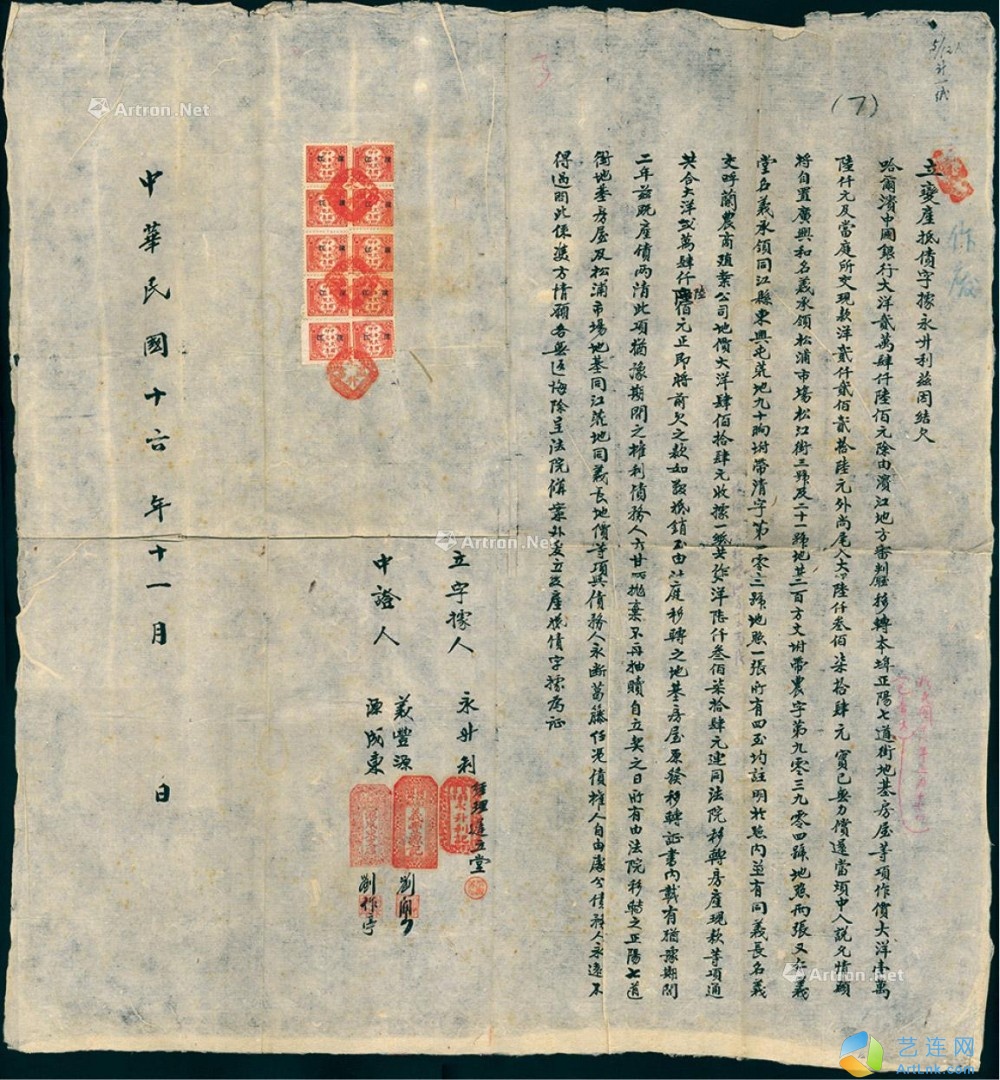 5/12
(7)
作廢
立變產抵債字據永升利茲因結欠
哈爾濱中國銀行大洋貳萬肆仟陸佰元除由濱江地方審判廳移轉本埠正陽七道街地基房屋等項作價大洋壹萬
陸仟元及當庭所交現款洋貳仟貳佰貳拾陸元外尚尾欠大洋陸仟叁佰柒拾肆元實已無力償還當項中人說允情願
將自置廣興和名義承領松浦市場松江街三號及二十一號地共二百方丈坿帶農字第九零三九零四號地照兩張又仁義
堂名義承領同江縣東興屯荒地九十晌坿帶清字第一零三號地照一張所有四至均註明於照內並有同義長名義
交呼蘭農商殖業公司地價大洋肆佰拾肆元收據一紙共作洋陸仟叁佰柒拾肆元連同法院移轉房產現款等項通
共合大洋貳萬肆仟陸佰元正即將前欠之款如數抵銷至由法庭移轉之地基房屋原發移轉証書內載有猶豫期間
二年茲既產債兩清此項猶豫期間之權利債務人亦甘心拋棄不再抽贖自立契之日所有由法院移轉之正陽七道
街地基房屋及松浦市場地基同江荒地同義長地價等項與債務人永斷葛籐任憑債權人自由處分債務人永遠不
得過問此係雙方情願各無返悔除呈法院備案外爰立變產抵債字據為証
立字據人 永升利 經理 堂
中證人 義豐源 劉
源成東 劉作亭
中華民國十六年十一月 日
Artron.Net
Artron.Net
Artron.Net
Artron.Net
艺连网
ArtLink.com